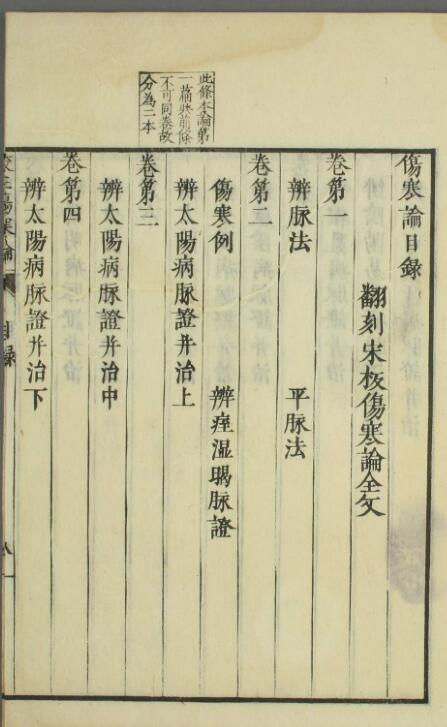 傷寒論目錄
翻刻宋板傷寒論全文
卷第一
辨脉法
平脉法
卷第二
傷寒例
辨痓湿暍脉證
辨太陽病脉證并治上
卷第三
辨太陽病脉證并治中
卷第四
辨太陽病脉證并治下
此條本論第
一篇與前條
不可同条故
分為二本
傷寒論
目錄